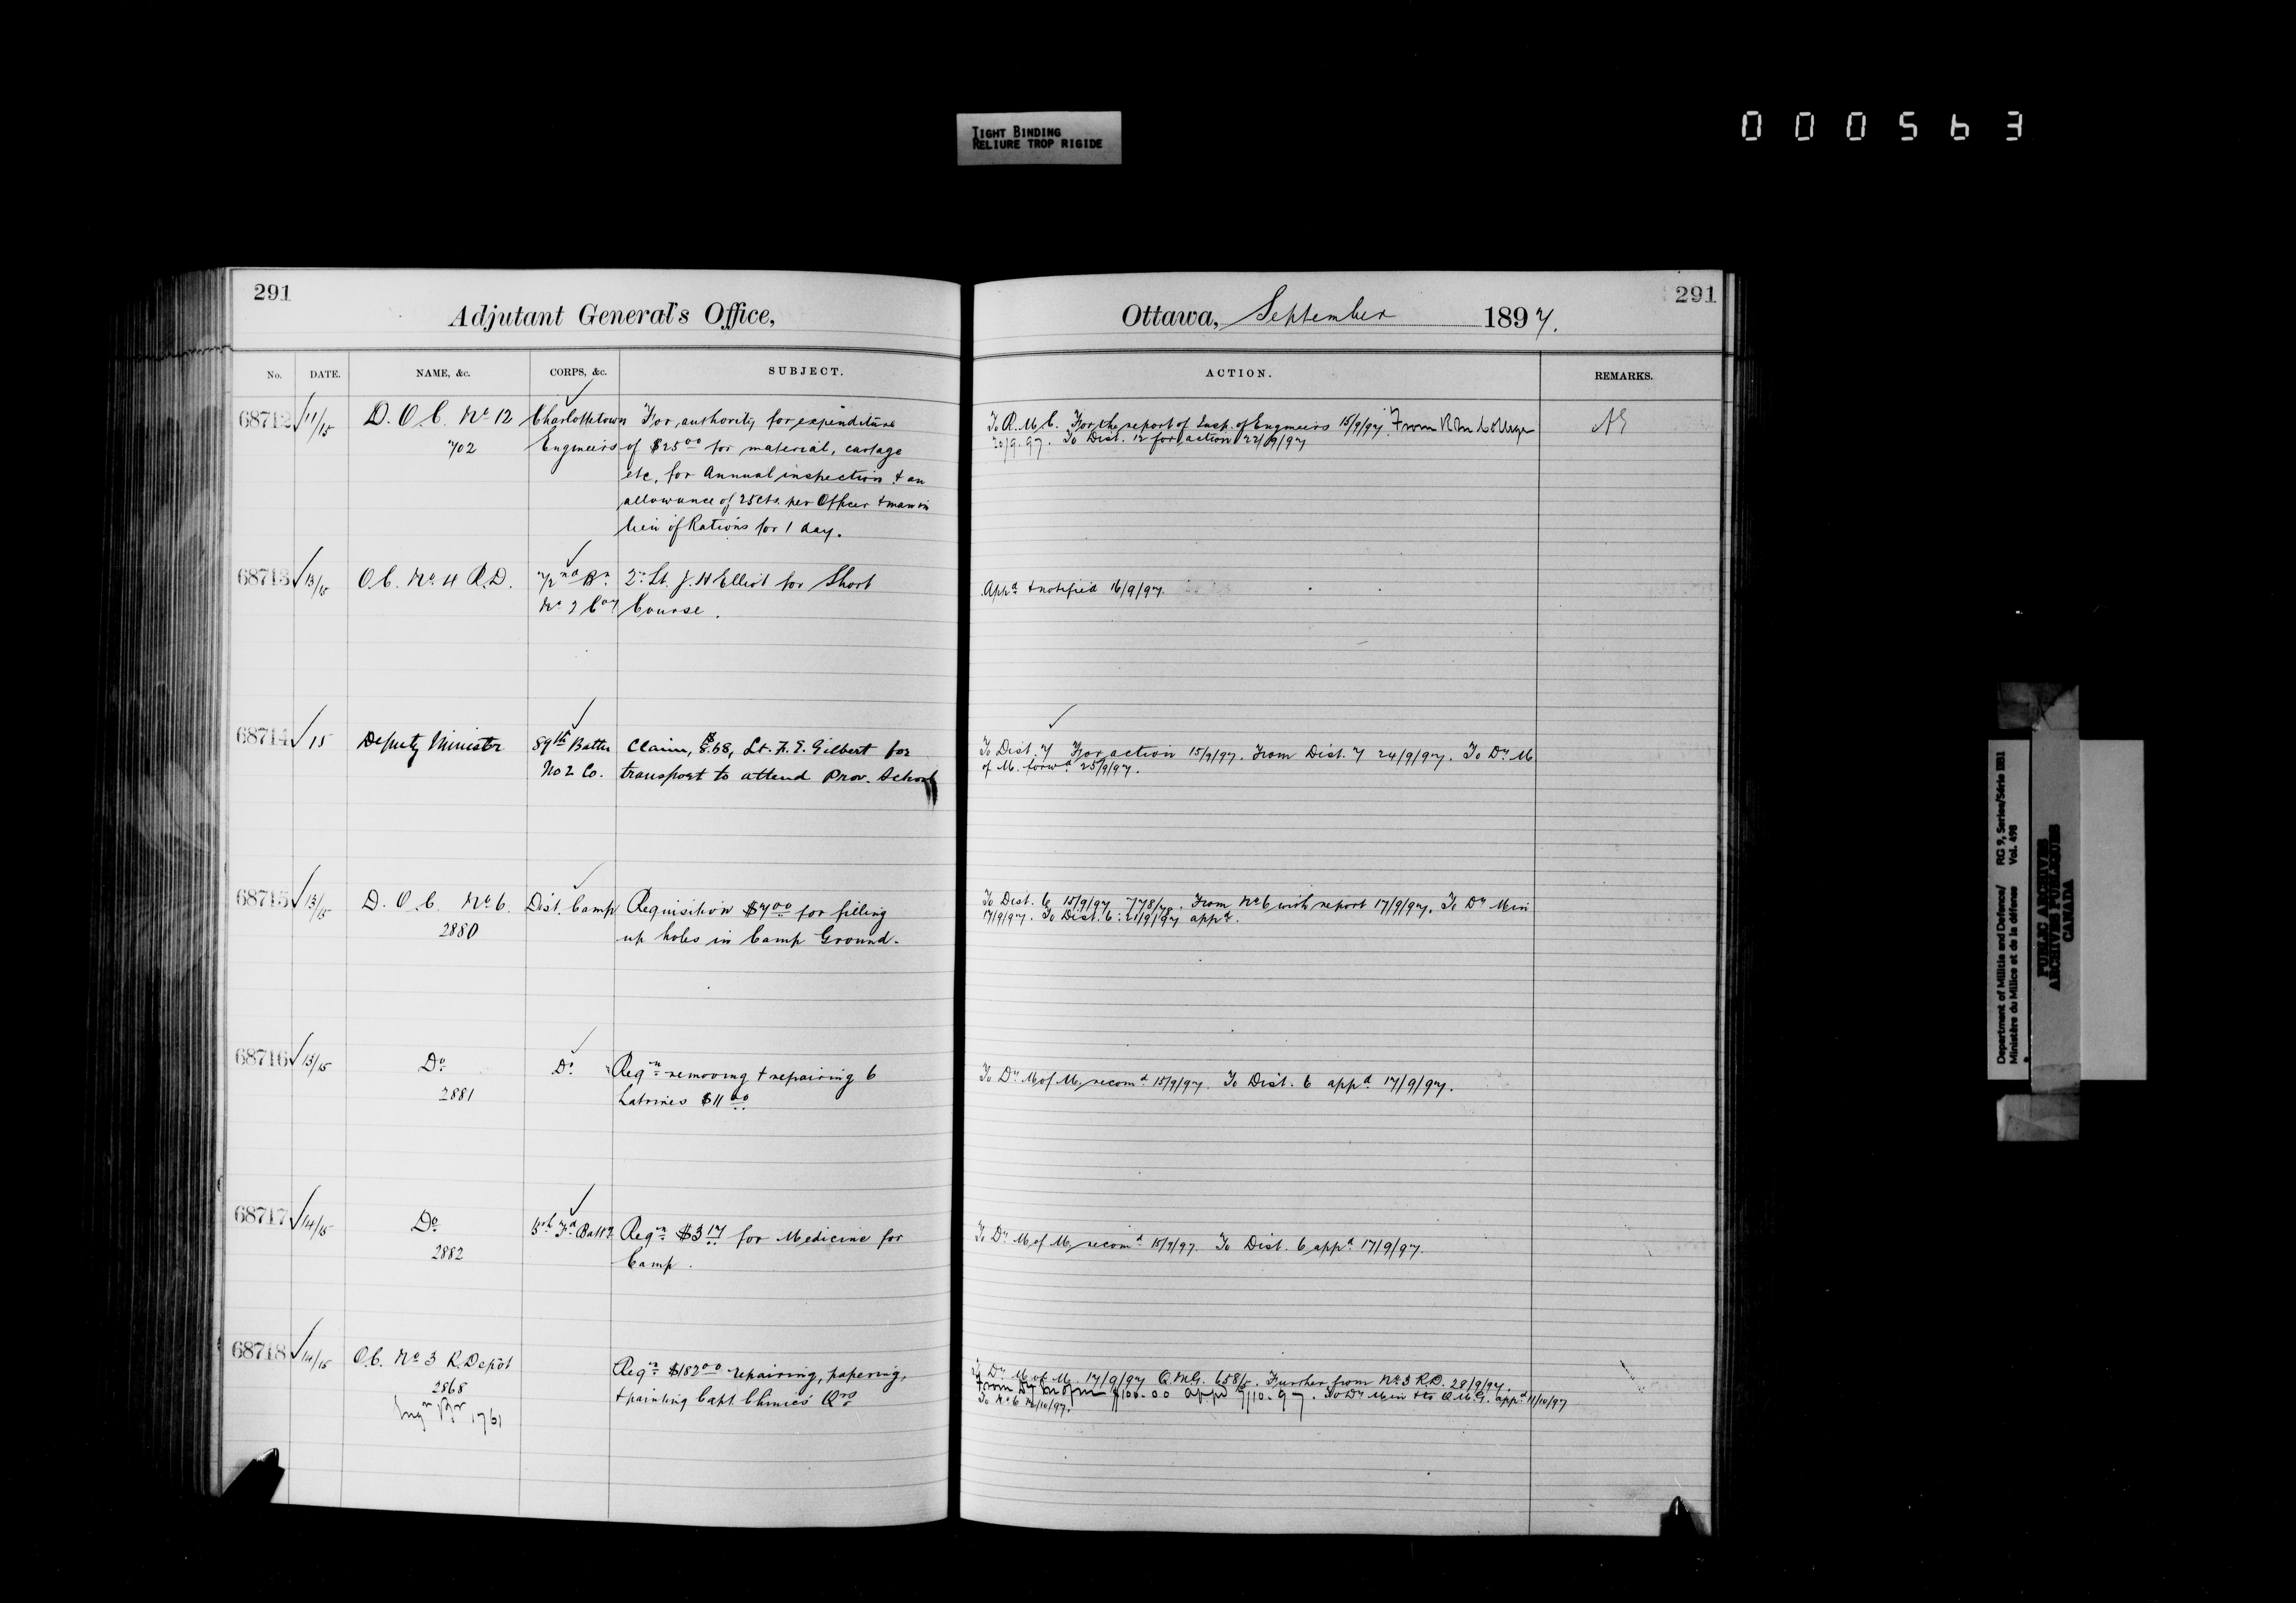 TIGHT BINDING
RELIURE TROP RIGIDE
000563
291
Adjutant General's Office,
No. DATE. NAME, &c. CORPS, &c. SUBJECT.
68712 11/15 D. O. C. No 12 Charlottetown For authority for expenditure
702 Engineers of $25.00 for material, cartage
etc, for Annual inspection & an
allowance of 25cts. per Officer & man in
lieu of Rations for 1 day.
68713 13/15 O.C. No. 4 R.D. 72nd Bn. 2nd Lt. J. H Elliot for Short
No 2 Coy Course.
68714 15 Deputy Minister 89th Battn Claim, $8.68, Lt. F. E. Gilbert for
No 2 Co. transport to attend Prov. School
68715 13/15 D. O. C. No 6. Dist. Camp Requisition $7.00 for filling
2880 up holes in Camp Ground.
68716 13/15 Do Do. Reqn removing & repairing 6
2881 Latrines $11.00
68717 14/15 Do 5th Fd Batty Reqn $3.17 for Medicine for
2882 Camp.
68718 14/15 O.C. No 3 R. Depôt Reqn $182.00 repairing, papering,
2868 & painting Capt. Chinic's Qrs
1761
291
Ottawa, September 1897.
ACTION. REMARKS.
To R. M. C. For the report of Insp. of Engineers 15/9/97. From R M College
20/9.97. To Dist. 12 for action 22/9/97
Appd & notified 16/9/97.
To Dist. 7 For action 15/9/97. From Dist. 7 24/9/97. To Dy M
of M. forwd 25/9/97.
To Dist. 6 15/9/97 From No 6 with report 17/9/97. To Dy Min
17/9/97. To Dist. 6. 21/9/97 appd.
To Dy M of M, recomd 15/9/97. To Dist. 6 appd 17/9/97.
To Dy M of M, recomd 15/9/97. To Dist. 6 appd 17/9/97.
To Dy M of M. 17/9/97 Q.M.G. 658/5. Further from No 3 R.D. 28/9/97.
From Dy M of M $100.00 appd 7/10.97. To Dy Min & to Q.M.G. appd 11/10/97
To No 6 12/10/97.
Department of Militia and Defence/ RG 9, Series/Série IIB1
Ministère du Milice et de la défense Vol. 498
PUBLIC ARCHIVES
ARCHIVES PUBLIQUES
CANADA